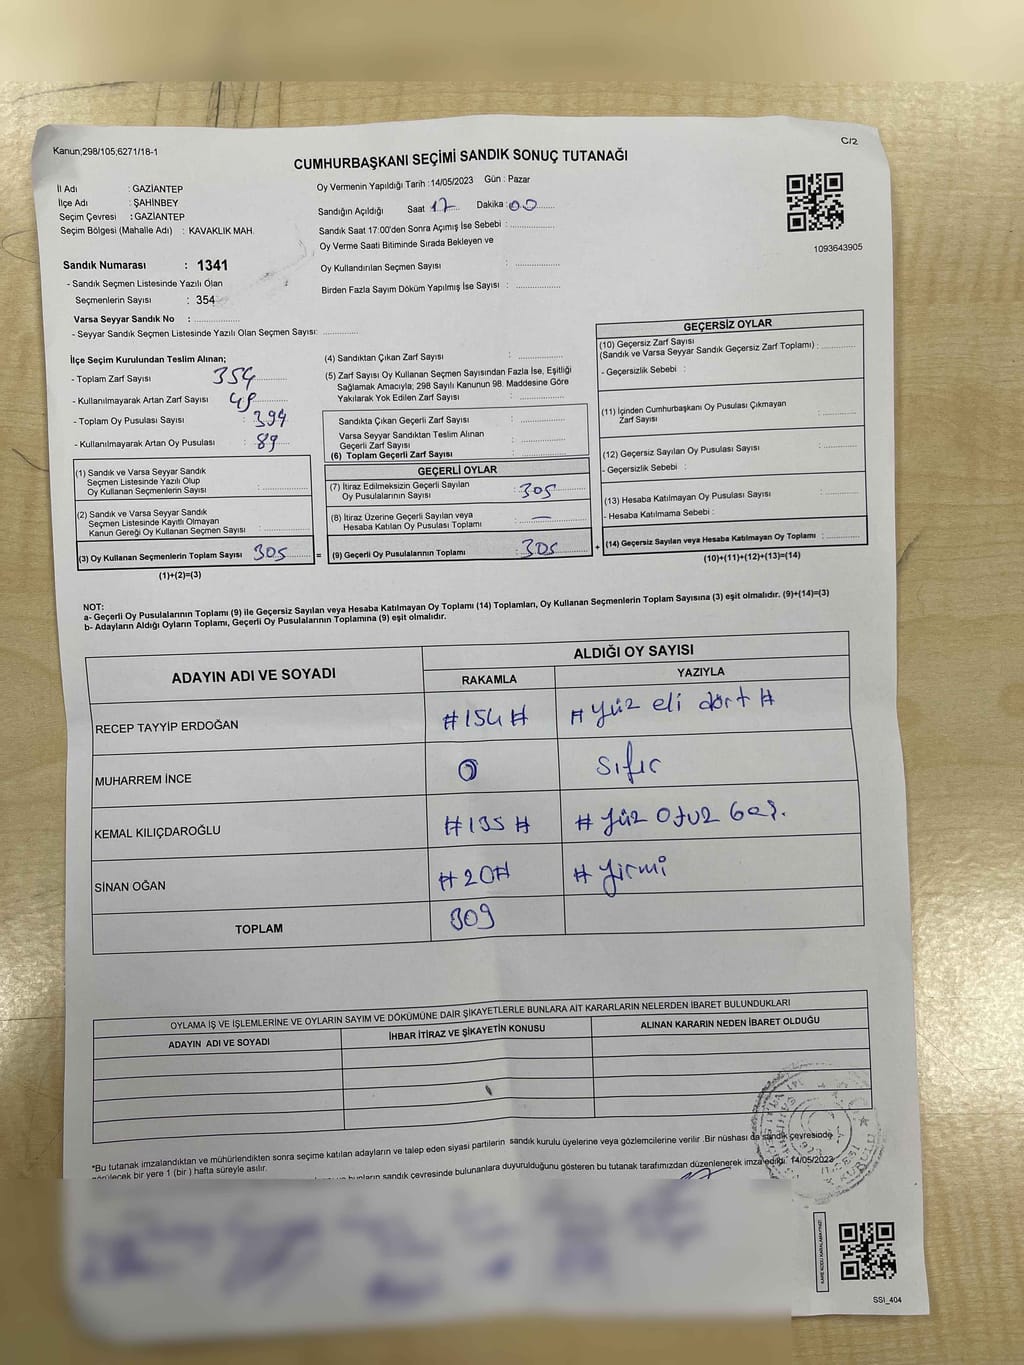 Kanun;298/105;6271/18-1
C/2
CUMHURBAŞKANI SEÇİMİ SANDIK SONUÇ TUTANAĞI
İl Adı : GAZİANTEP
İlçe Adı : ŞAHİNBEY
Seçim Çevresi : GAZİANTEP
Seçim Bölgesi (Mahalle Adı) : KAVAKLIK MAH.
Oy Vermenin Yapıldığı Tarih : 14/05/2023 Gün : Pazar
Sandığın Açıldığı Saat 17 Dakika : 00
Sandık Saat 17:00'den Sonra Açımış İse Sebebi :
Oy Verme Saati Bitiminde Sırada Bekleyen ve
Oy Kullandırılan Seçmen Sayısı :
Birden Fazla Sayım Döküm Yapılmış İse Sayısı :
1093643905
Sandık Numarası : 1341
- Sandık Seçmen Listesinde Yazılı Olan
Seçmenlerin Sayısı : 354
Varsa Seyyar Sandık No :
- Seyyar Sandık Seçmen Listesinde Yazılı Olan Seçmen Sayısı:
İlçe Seçim Kurulundan Teslim Alınan;
- Toplam Zarf Sayısı 354
- Kullanılmayarak Artan Zarf Sayısı
- Toplam Oy Pusulası Sayısı : 394
- Kullanılmayarak Artan Oy Pusulası : 89
(1) Sandık ve Varsa Seyyar Sandık
Seçmen Listesinde Yazılı Olup
Oy Kullanan Seçmenlerin Sayısı :
(2) Sandık ve Varsa Seyyar Sandık
Seçmen Listesinde Kayıtlı Olmayan
Kanun Gereği Oy Kullanan Seçmen Sayısı :
(3) Oy Kullanan Seçmenlerin Toplam Sayısı 305 =
(1)+(2)=(3)
(4) Sandıktan Çıkan Zarf Sayısı :
(5) Zarf Sayısı Oy Kullanan Seçmen Sayısından Fazla İse, Eşitliği
Sağlamak Amacıyla; 298 Sayılı Kanunun 98. Maddesine Göre
Yakılarak Yok Edilen Zarf Sayısı :
Sandıkta Çıkan Geçerli Zarf Sayısı :
Varsa Seyyar Sandıktan Teslim Alınan
Geçerli Zarf Sayısı :
(6) Toplam Geçerli Zarf Sayısı :
GEÇERLİ OYLAR
(7) İtiraz Edilmeksizin Geçerli Sayılan
Oy Pusulalarının Sayısı : 305
(8) İtiraz Üzerine Geçerli Sayılan veya
Hesaba Katılan Oy Pusulası Toplamı : —
(9) Geçerli Oy Pusulalarının Toplamı : 305 +
GEÇERSİZ OYLAR
(10) Geçersiz Zarf Sayısı
(Sandık ve Varsa Seyyar Sandık Geçersiz Zarf Toplamı) :
- Geçersizlik Sebebi :
(11) İçinden Cumhurbaşkanı Oy Pusulası Çıkmayan
Zarf Sayısı :
(12) Geçersiz Sayılan Oy Pusulası Sayısı :
- Geçersizlik Sebebi :
(13) Hesaba Katılmayan Oy Pusulası Sayısı :
- Hesaba Katılmama Sebebi :
(14) Geçersiz Sayılan veya Hesaba Katılmayan Oy Toplamı :
(10)+(11)+(12)+(13)=(14)
NOT:
a- Geçerli Oy Pusulalarının Toplamı (9) ile Geçersiz Sayılan veya Hesaba Katılmayan Oy Toplamı (14) Toplamları, Oy Kullanan Seçmenlerin Toplam Sayısına (3) eşit olmalıdır. (9)+(14)=(3)
b- Adayların Aldığı Oyların Toplamı, Geçerli Oy Pusulalarının Toplamına (9) eşit olmalıdır.
ADAYIN ADI VE SOYADI
ALDIĞI OY SAYISI
RAKAMLA YAZIYLA
RECEP TAYYİP ERDOĞAN #154# # yüz eli dört #
MUHARREM İNCE 0 sıfır
KEMAL KILIÇDAROĞLU #135# # yüz otuz beş.
SİNAN OĞAN #20# # yirmi
TOPLAM 309
OYLAMA İŞ VE İŞLEMLERİNE VE OYLARIN SAYIM VE DÖKÜMÜNE DAİR ŞİKAYETLERLE BUNLARA AİT KARARLARIN NELERDEN İBARET BULUNDUKLARI
ADAYIN ADI VE SOYADI İHBAR İTİRAZ VE ŞİKAYETİN KONUSU ALINAN KARARIN NEDEN İBARET OLDUĞU
*Bu tutanak imzalandıktan ve mühürlendikten sonra seçime katılan adayların ve talep eden siyasi partilerin sandık kurulu üyelerine veya gözlemcilerine verilir .Bir nüshası da sandık çevresinde
görülecek bir yere 1 (bir ) hafta süreyle asılır.
bunların sandık çevresinde bulunanlara duyurulduğunu gösteren bu tutanak tarafımızdan düzenlenerek imza edildi. 14/05/2023
KURULU
SSI_404